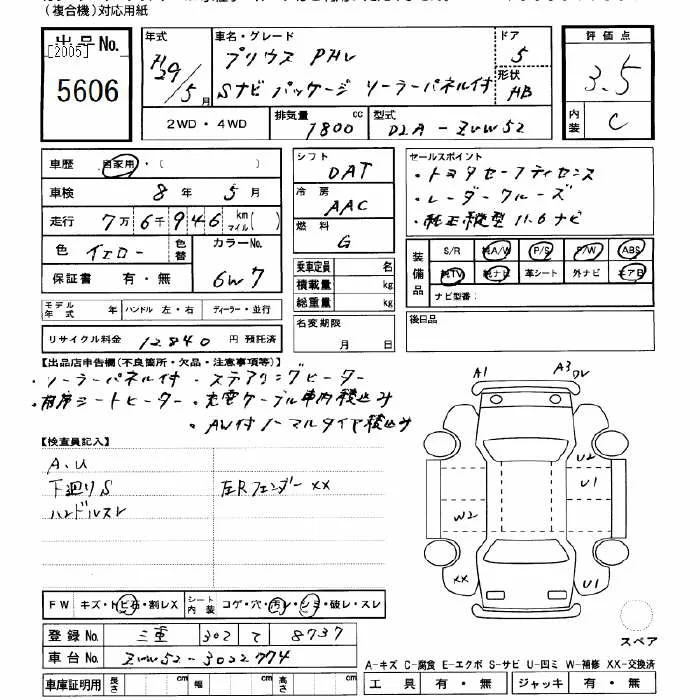 (複合機)対応用紙
出品No. [2005] 5606
年式 H29/5月
車名・グレード プリウス PHV
Sナビパッケージ ソーラーパネル付
ドア 5
形状 HB
2WD・4WD
排気量 1800 cc
型式 DLA-ZVW52
評価点 3.5
内装 C
車歴 自家用・( )
車検 8年 5月
走行 7万6千946 km マイル( )
色 イエロー 色替 カラーNo. 6W7
保証書 有・無
モデル年式 年 ハンドル 左・右 ディーラー・並行
リサイクル料金 12840 円 預託済
シフト DAT
冷房 AAC
燃料 G
乗車定員 名
積載量 kg
総重量 kg
名変期限
月 日
セールスポイント
・トヨタセーフティセンス
・レーダークルーズ
・純正縦型11.6ナビ
装備品 S/R 純A/W P/S P/W ABS
純TV 純ナビ 革シート 外ナビ エアB
ナビ型番:
後日品
【出品店申告欄(不良箇所・欠品・注意事項等)】
・ソーラーパネル付 ・ステアリングヒーター
・前席シートヒーター ・充電ケーブル車内積込み
・AW付ノーマルタイヤ積込み
【検査員記入】
A.U
下廻りS 左Rフェンダー××
ハンドルスレ
A1
A3
U2
U1
W2
XX
U1
FW キズ・トビ石・割レX シート内装 コゲ・穴・汚レ・シミ・破レ・スレ
登録No. 三重 302 て 8737
車台No. ZVW52-3022774
車庫証明用 長さ cm 幅 cm 高さ cm
スペア
A-キズ C-腐食 E-エクボ S-サビ U-凹ミ W-補修 XX-交換済
工具 有・無 ジャッキ 有・無